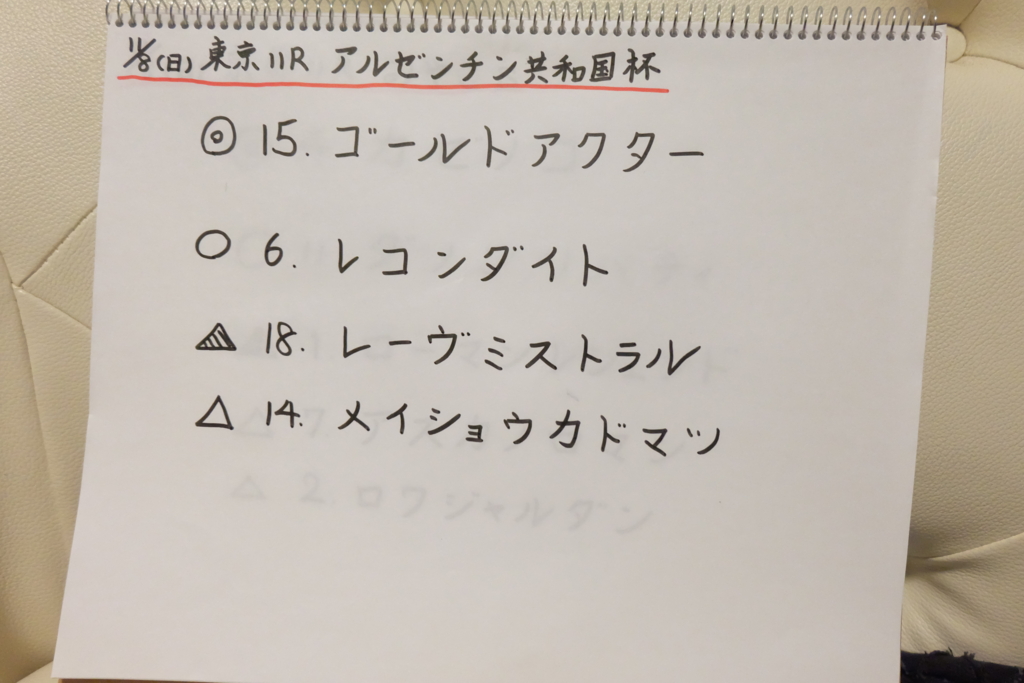 11/8(日) 東京11R アルゼンチン共和国杯
◎ 15. ゴールドアクター
○ 6. レコンダイト
▲ 18. レーヴミストラル
△ 14. メイショウカドマツ
△ 2. ロワジャルダン